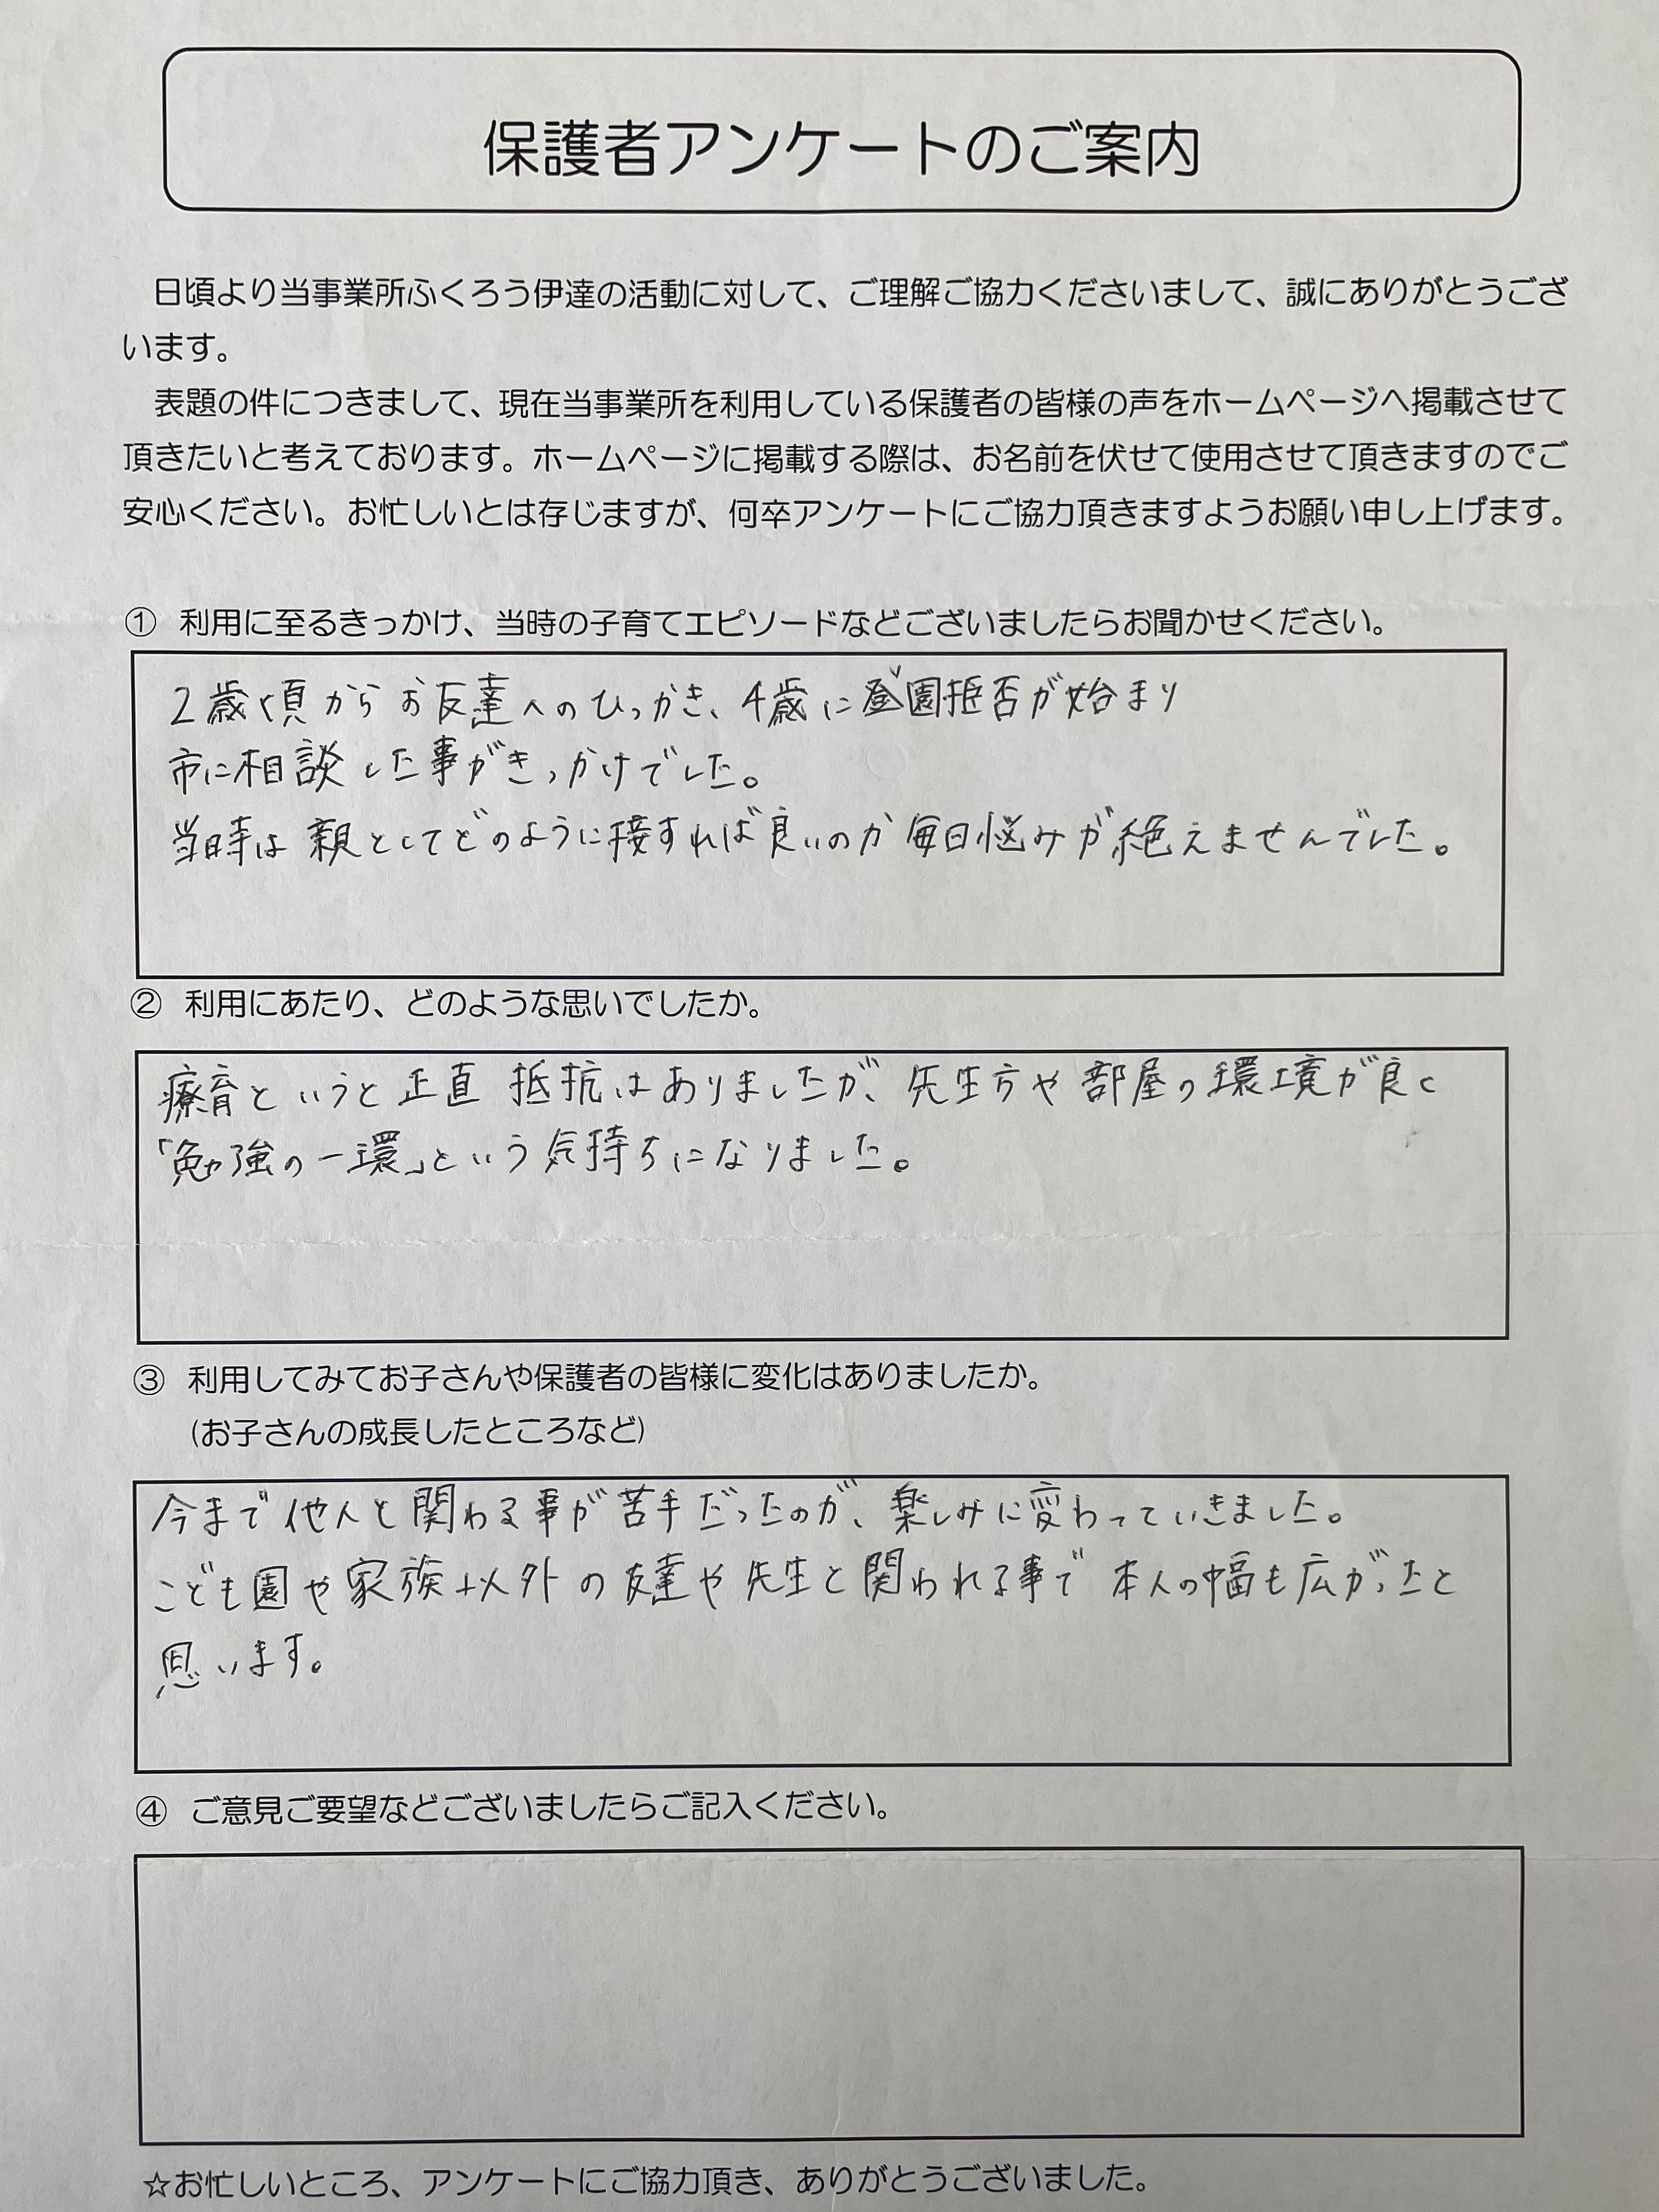 保護者アンケートのご案内
日頃より当事業所ふくろう伊達の活動に対して、ご理解ご協力くださいまして、誠にありがとうござ
います。
表題の件につきまして、現在当事業所を利用している保護者の皆様の声をホームページへ掲載させて
頂きたいと考えております。ホームページに掲載する際は、お名前を伏せて使用させて頂きますのでご
安心ください。お忙しいとは存じますが、何卒アンケートにご協力頂きますようお願い申し上げます。
① 利用に至るきっかけ、当時の子育てエピソードなどございましたらお聞かせください。
2歳頃からお友達へのひっかき、4歳に登園拒否が始まり
市に相談した事がきっかけでした。
当時は親としてどのように接すれば良いのか毎日悩みが絶えませんでした。
② 利用にあたり、どのような思いでしたか。
療育というと正直 抵抗はありましたが、先生方や部屋の環境が良く
「勉強の一環」という気持ちになりました。
③ 利用してみてお子さんや保護者の皆様に変化はありましたか。
(お子さんの成長したところなど)
今まで他人と関わる事が苦手だったのが、楽しみに変わっていきました。
こども園や家族以外の友達や先生と関われる事で本人の幅も広がったと
思います。
④ ご意見ご要望などございましたらご記入ください。
☆お忙しいところ、アンケートにご協力頂き、ありがとうございました。